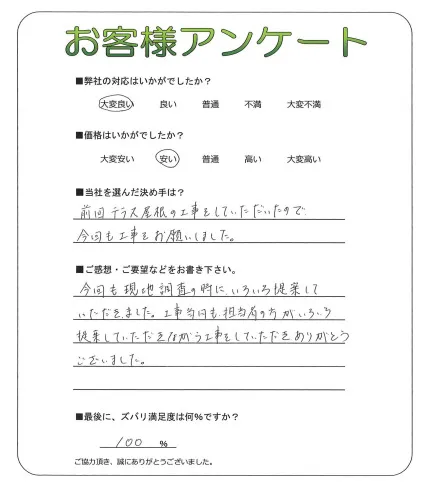 お客様アンケート
■弊社の対応はいかがでしたか？
大変良い 良い 普通 不満 大変不満
■価格はいかがでしたか？
大変安い 安い 普通 高い 大変高い
■当社を選んだ決め手は？
前回テラス屋根の工事をしていただいたので
今回も工事をお願いしました。
■ご感想・ご要望などをお書き下さい。
今回も現地調査の時に、いろいろ提案して
いただきました。工事当日も、担当者の方がいろいろ
提案していただきながら工事をしていただきありがとう
ございました。
■最後に、ズバリ満足度は何%ですか？
100 %
ご協力頂き、誠にありがとうございました。